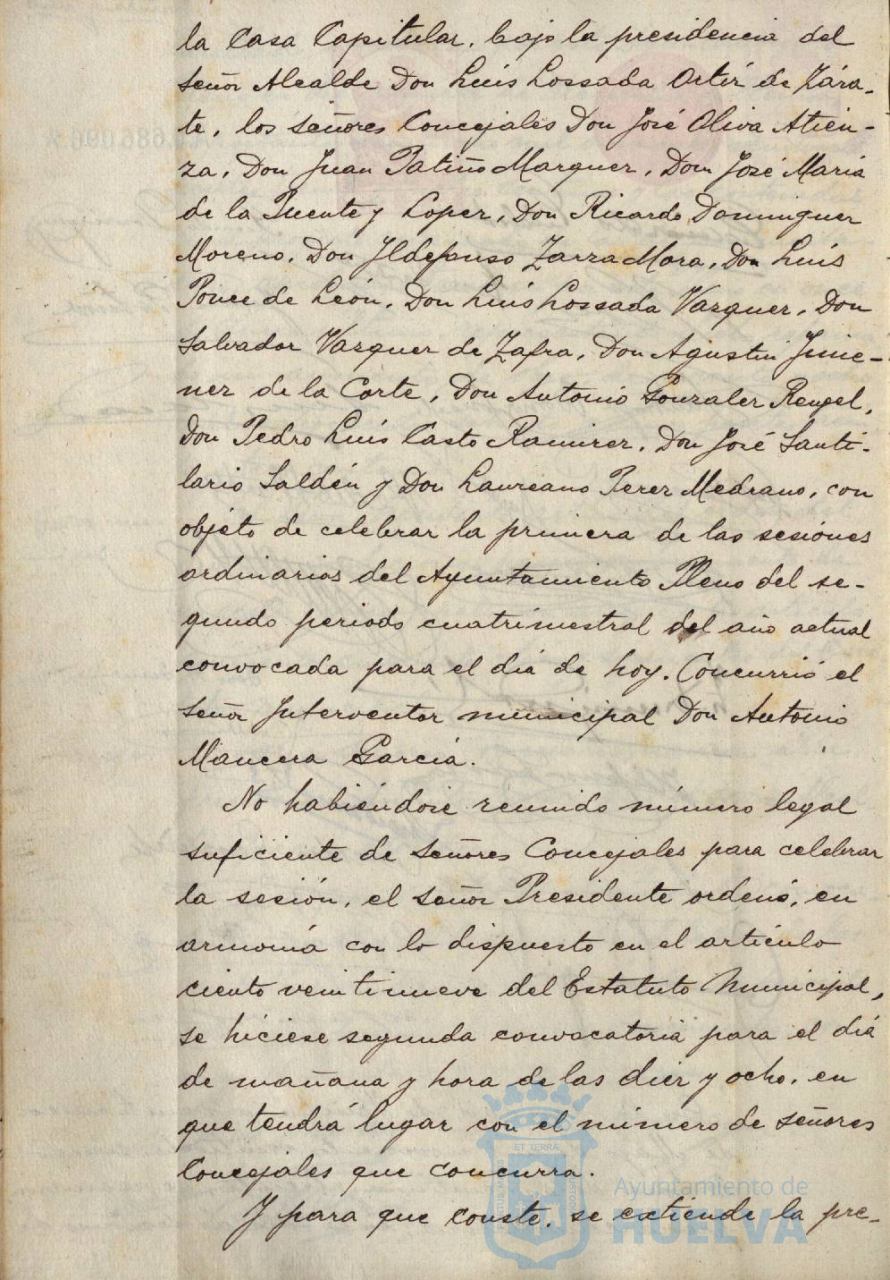 la Casa Capitular, bajo la presidencia del
señor Alcalde Don Luis Lossada Ortiz de Zára-
te, los señores Concejales Don José Oliva Atien-
za, Don Juan Patiño Marquez, Don José Maria
de la Puente y Lopez, Don Ricardo Dominguez
Moreno, Don Ildefonso Zarza Mora, Don Luis
Ponce de León, Don Luis Lossada Vazquez, Don
Salvador Vazquez de Zafra, Don Agustin Jime-
nez de la Corte, Don Antonio Gonzalez Rengel,
Don Pedro Luis Casto Ramirez, Don José Santi-
lario Saldén y Don Laureano Perez Medrano, con
objeto de celebrar la primera de las sesiones
ordinarias del Ayuntamiento Pleno del se-
gundo periodo cuatrimestral del año actual
convocada para el dia de hoy. Concurrió el
señor Interventor municipal Don Antonio
Mancera Garcia.
No habiéndose reunido número legal
suficiente de señores Concejales para celebrar
la sesión, el señor Presidente ordenó, en
armonia con lo dispuesto en el articulo
ciento veintinueve del Estatuto Municipal,
se hiciese segunda convocatoria para el dia
de mañana y hora de las diez y ocho, en
que tendrá lugar con el número de señores
Concejales que concurra.
Y para que conste, se extiende la pre-
Ayuntamiento de
HUELVA